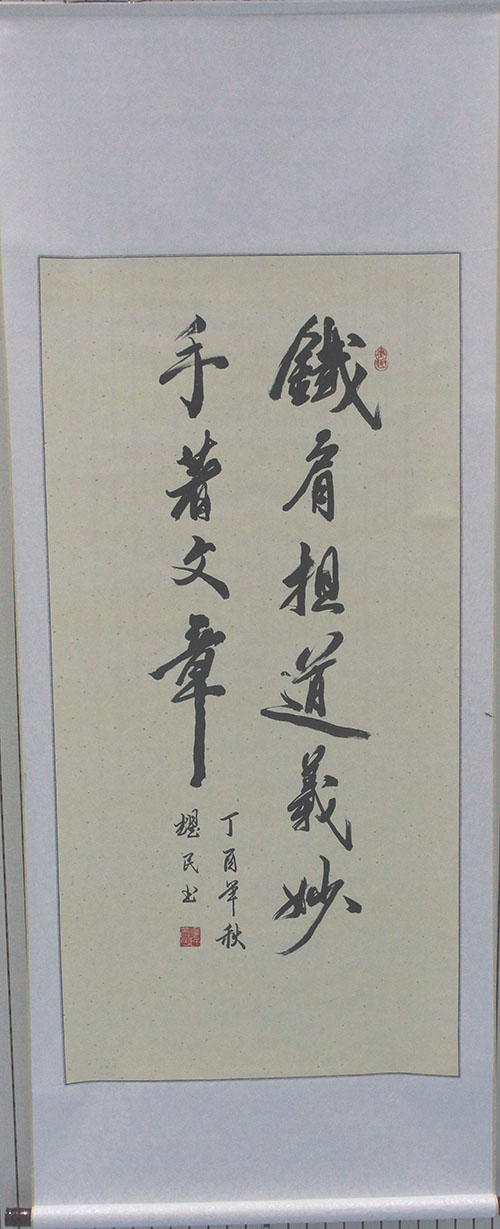 鐵肩担道義妙
手著文章
丁酉年秋
耀民书